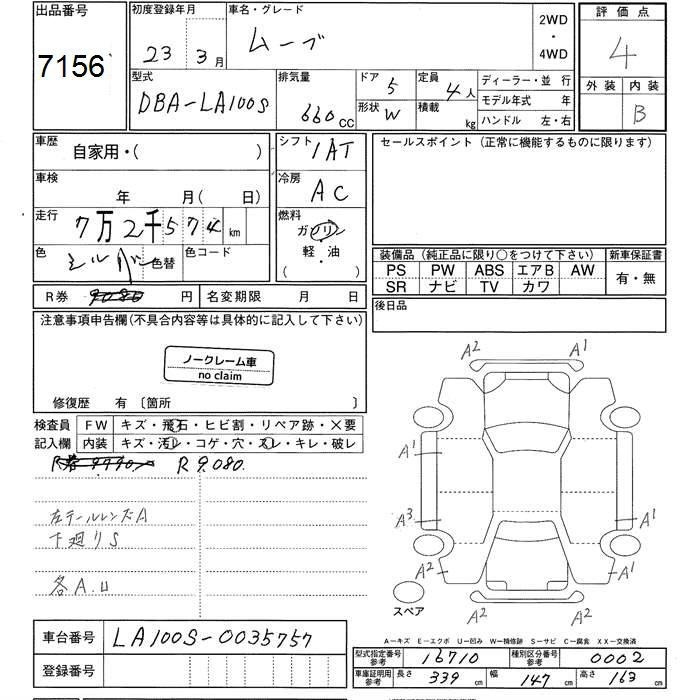 出品番号
7156
初度登録年月
23年3月
車名・グレード
ムーブ
2WD
・
4WD
評価点
4
外装 内装
B
型式
DBA-LA100S
排気量
660cc
ドア 5
形状 W
定員 4人
積載 kg
ディーラー・並行
モデル年式 年
ハンドル 左・右
車歴
自家用・( )
車検
年 月(日)
走行
7万2千574km
色
シルバー 色替
色コード
シフト
IAT
冷房
AC
燃料
ガソリン
軽・油
( )
セールスポイント (正常に機能するものに限ります)
装備品 (純正品に限り○をつけて下さい)
新車保証書
PS PW ABS エアB AW
SR ナビ TV カワ
有・無
R券 9080 円
名変期限 月 日
後日品
注意事項申告欄(不具合内容等は具体的に記入して下さい)
ノークレーム車
no claim
修復歴 有 〔箇所 〕
検査員 FW キズ・飛石・ヒビ割・リペア跡・×要
記入欄 内装 キズ・汚レ・コゲ・穴・スレ・キレ・破レ
R券 9990 R 9.080.
左テールレンズA
下廻りS
各A.U
A2 A1
A1
A3 A1
A2 A2
A1
スペア
A-キズ E-エクボ U-凹み W-補修跡 S-サビ C-腐食 XX-交換済
車台番号
LA100S-0035757
登録番号
型式指定番号
参考
16710
種別区分番号
参考
0002
車庫証明用
参考
長さ 339cm
幅 147cm
高さ 163cm